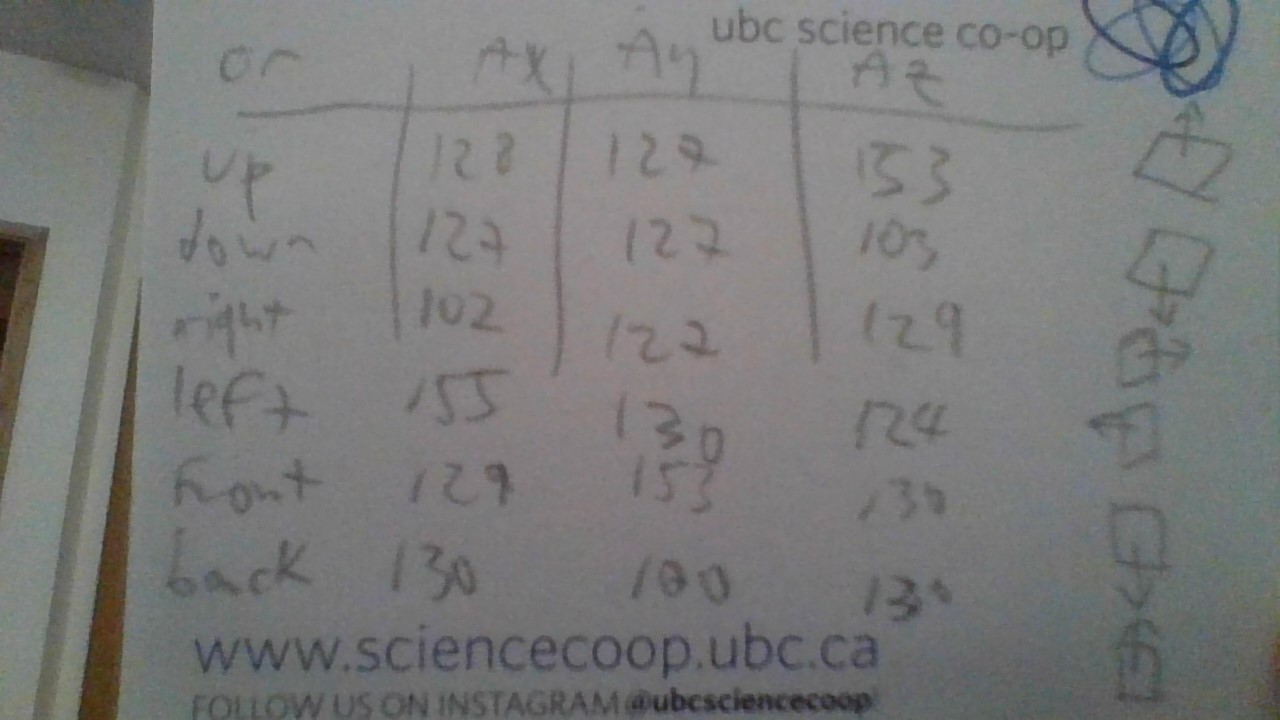 ubc science co-op
or Ax Ay Az
up 128 127 153
down 127 127 103
right 102 127 129
left 155 130 124
front 129 153 130
back 130 100 130
www.sciencecoop.ubc.ca
FOLLOW US ON INSTAGRAM @ubcsciencecoop